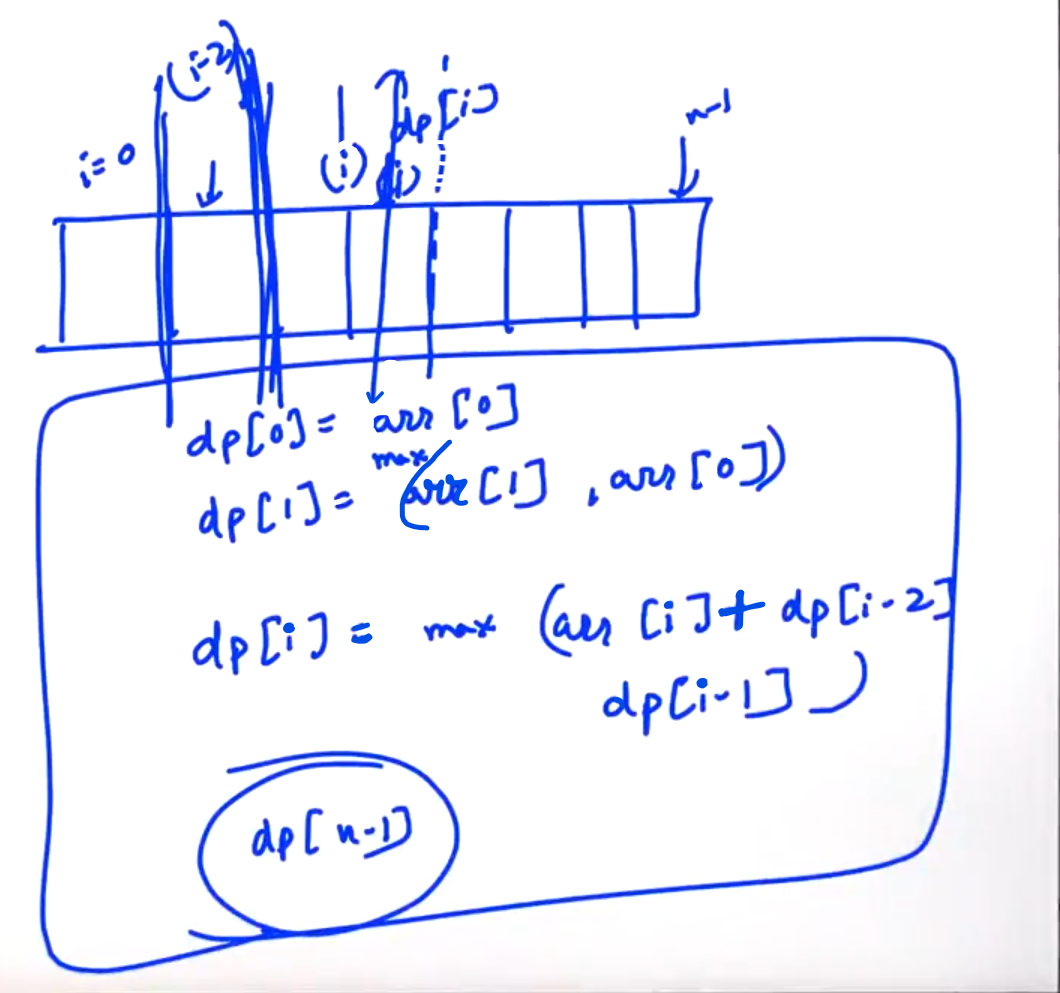 (i-2)
i=0
(i)
(i)
dp[i]
i
n-1
dp[0] = arr [0]
max
dp[1] = (arr [1] , arr [0])
dp[i] = max (arr [i] + dp[i-2]
dp[i-1] )
dp[n-1]